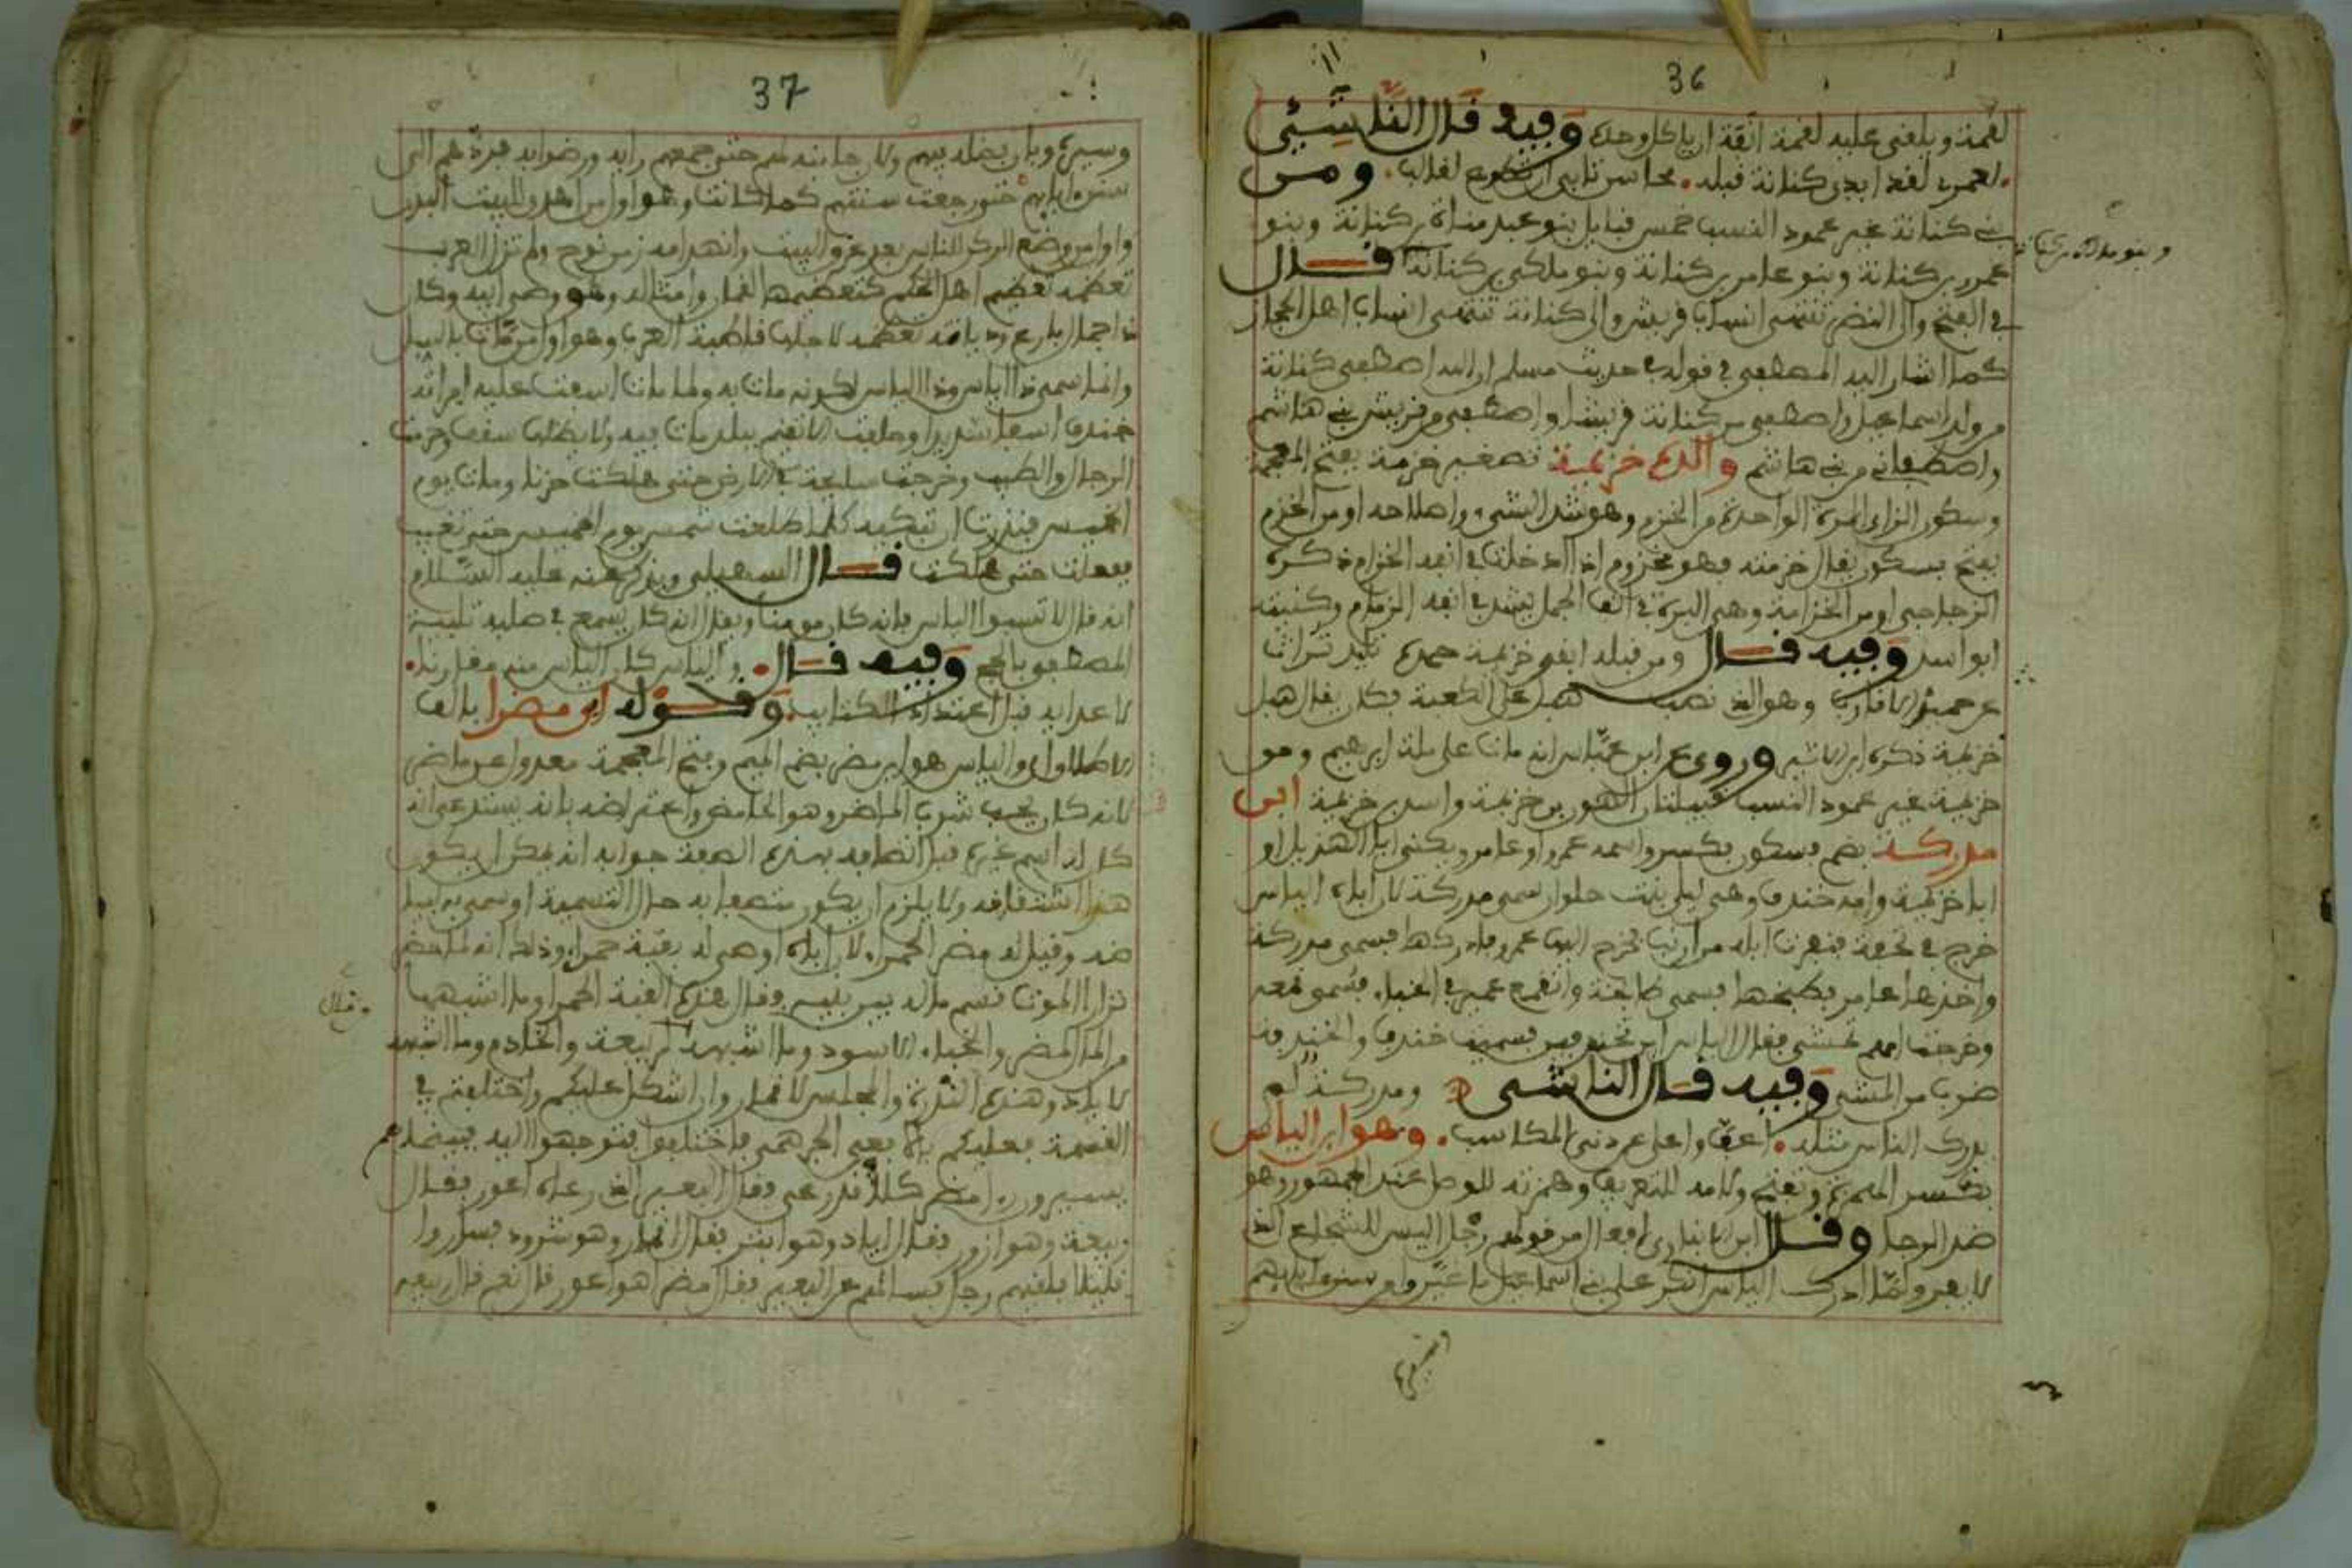 36
لقمة ويلقى عليه لقمة انفة ان ياكل وحده وفيه قال الناشئي
لعمري لقد ابدى كنانة قبله محاسن تابى ان تطوع لغالب ومن
بني كنانة غير عمود النسب خمس قبايل بنو عبد مناة بن كنانة وبنو
عمرو بن كنانة وبنو عامر بن كنانة وبنو ملكن بن كنانة قال
في الفتح والى النضر تنتهى انساب قريش والى كنانة تنتهى انساب اهل الحجاز
كما اشار اليه المصطفى في قوله في حديث مسلم ان الله اصطفى كنانة
من ولد اسماعيل واصطفى من كنانة قريشا واصطفى من قريش بني هاشم
واصطفاني من بني هاشم والده خزيمة تصغير خزمة بفتح المعجمة
وسكون الزاى المرة الواحدة من الخزم وهو شد الشيء واصلاحه او من الخزم
بفتح بسكون يقال خزمته فهو مخزوم اذا ادخلت في انفه الخزام ذكره
الزجاجي او من الخزامة وهي البرة في انف الجمل يشد في انفه الزمام وكنيته
ابو اسد وفيه قال ومن قبله ابقى خزيمة حمده تليد تراث
عن حميد الاقارب وهو الذي نصب هبل على الكعبة فكان يقال هبل
خزيمة ذكره ابن الاثير وروى عن ابن عباس انه مات على ملة ابرهيم ومن
خزيمة غير عمود النسب قبيلتان الهون بن خزيمة واسد بن خزيمة ابن
مدركة بضم فسكون فكسر واسمه عمرو او عامر ويكنى ابا الهذيل او
ابا خزيمة وامه خندف وهي ليلى بنت حلوان سمى مدركة لان اباه الياس
خرج في نجعة فنفرت ابله من ارنب فخرج اليها عمرو فادركها فسمى مدركة
واخذها عامر فطبخها فسمى طابخة وانقمع عمير في الخباء فسمى قمعة
وخرجت امهم تمشى فقال الياس اين تخندفين فسميت خندف والخندفة
ضرب من المشي وفيه قال الناشى ومدركة لم
يدرك الناس مثله اعف واعلى عن دنى المكاسب وهو ابن الياس
بكسر الهمزة وتفتح ولامه للتعريف وهمزته للوصل عند الجمهور وهو
ضد الرجا وقال ابن الانباري افعال من قولهم رجل اليس للشجاع الذي
لا يفر ولما ادرك الياس انكر على بني اسماعيل ما غيروا من سنن ابايهم
37
وسيرهم وبان فضله فيهم ولان جانبه لهم حتى جمعهم رايه ورضوا به فردهم الى
سنن ابايهم حتى رجعت سنتهم كما كانت وهو اول من اهدى للبيت البدن
واول من وضع الركن للناس بعد غرق البيت وانهدامه زمن نوح ولم تزل العرب
تعظمه تعظيم اهل الحكم كتعظيمها لقمان وامثاله وهو وصى ابيه وكان
ذا جمال بارع
وانما سمى ذا الياس وذا الياس لكونه مات به ولما مات اسفت عليه امراته
خندف اسفا شديدا وحلفت الا تقيم ببلد مات فيه ولا يظلها سقف وحرمت
الرجال والطيب وخرجت سايحة في الارض حتى هلكت حزنا ومات يوم
الخميس فنذرت ان تبكيه كلما طلعت شمس يوم الخميس حتى تغيب
ففعلت حتى هلكت قال السهيلي ويذكر عنه عليه السلام
انه قال لا تسبوا الياس فانه كان مومنا ويقال انه كان يسمع في صلبه تلبية
المصطفى بالحج وفيه قال والياس كان الياس منه مقارنا
لاعدايه قبل اعتداد الكتايب وقوله ابن مضرا بالف
الاطلاق اى والياس هو ابن مضر بضم الميم وفتح المعجمة معدول عن ماضر
لانه كان يحب شرب الماضر وهو الحامض واعترضه بانه يستدعى انه
كان له اسم غيره قبل اتصافه بهذه الصفة جوابه انه يمكن ان يكون
هذا اشتقاقه ولا يلزم ان يكون متصفا به حال التسمية او سمى به
وقيل له مضر الحمراء لان اباه اوصى له بقبة حمراء وذلك انه لما حضر
نزار الموت قسم ماله بين بنيه فقال هذه القبة الحمرا وما اشبهها
من المال لمضر والخباء الاسود وما اشبهه لربيعة والخادم وما اشبهه
لاياد وهذه البدرة والمجلس لانمار وان اشكل عليكم واختلفتم في
القسمة فعليكم بافعى الجرهمي فاختلفوا فتوجهوا اليه فبينما هم
يسيرون راى مضر كلأ قد رعى فقال البعير الذي رعاه اعور فقال
ربيعة وهو ازور فقال اياد وهو ابتر فقال انمار وهو شرود فساروا
قليلا فلقيهم رجل فسالهم عن البعير فقال مضر اهو اعور قال نعم قال ربيعة